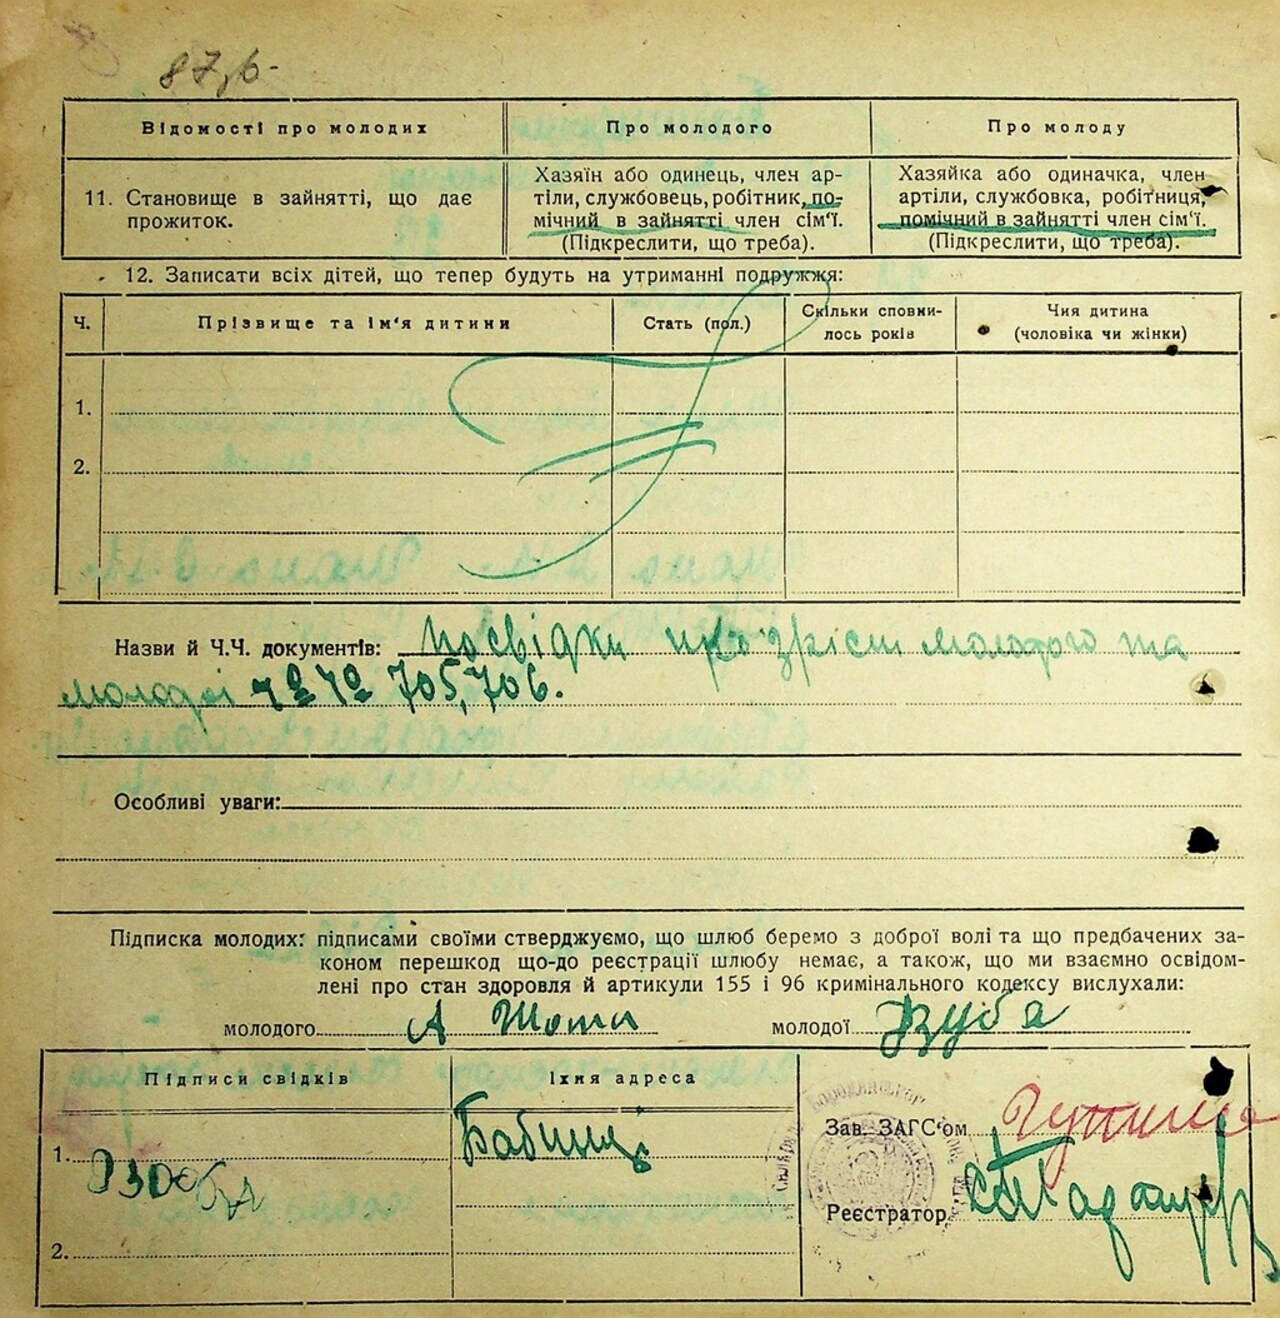 87, б-
Відомості про молодих
Про молодого
Про молоду
11. Становище в зайнятті, що дає прожиток.
Хазяїн або одинець, член ар-
тіли, службовець, робітник, по-
мічний в зайнятті член сім'ї.
(Підкреслити, що треба).
Хазяйка або одиначка, член
артіли, службовка, робітниця,
помічний в зайнятті член сім'ї.
(Підкреслити, що треба).
12. Записати всіх дітей, що тепер будуть на утриманні подружжя:
Ч.
Прізвище та ім'я дитини
Стать (пол.)
Скільки сповни-
лось років
Чия дитина
(чоловіка чи жінки)
1.
2.
Назви й Ч.Ч. документів: Посвідки про зріст молодого та
молодої 705, 706.
Особливі уваги:
Підписка молодих: підписами своїми стверджуємо, що шлюб беремо з доброї волі та що предбачених за-
коном перешкод що-до реєстрації шлюбу немає, а також, що ми взаємно освідом-
лені про стан здоровля й артикули 155 і 96 кримінального кодексу вислухали:
молодого А Шоти молодої Дзуба
Підписи свідків
Їхня адреса
1.
Бабинці
2.
Зав. ЗАГС'ом
Реєстратор